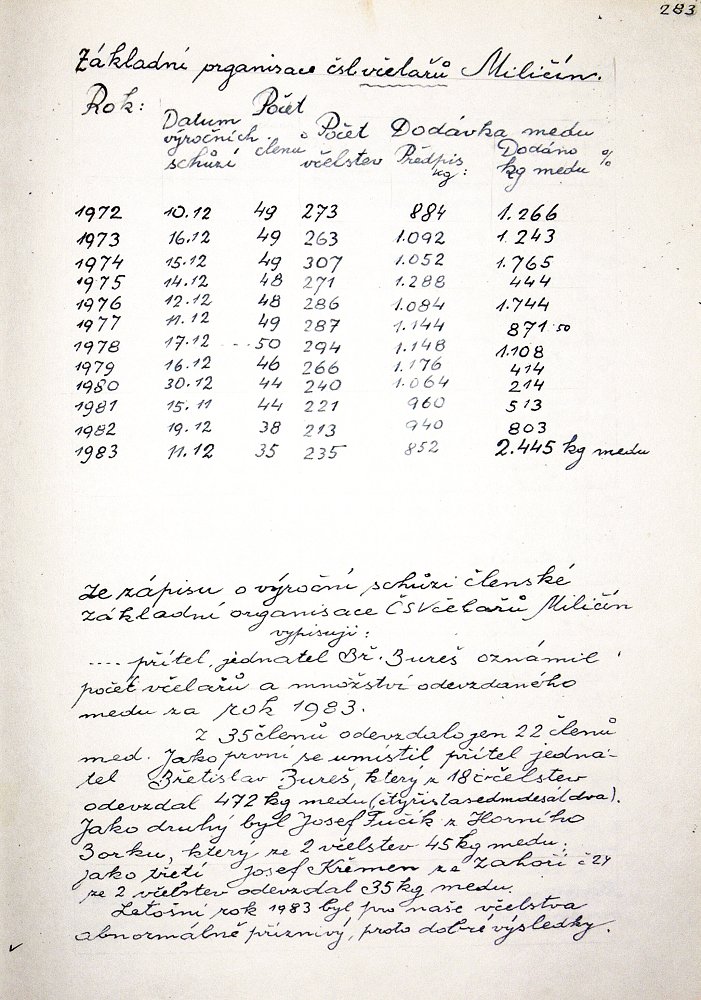 283
Základní organisace čsl včelařů Miličín.
Rok: Datum výročních schůzí Počet členu Počet včelstev Dodávka medu Předpis kg: Dodáno kg medu %
1972 10.12 49 273 884 1.266
1973 16.12 49 263 1.092 1.243
1974 15.12 49 307 1.052 1.765
1975 14.12 48 271 1.288 444
1976 12.12 48 286 1.084 1.744
1977 11.12 49 287 1.144 871.50
1978 17.12 ... 50 294 1.148 1.108
1979 16.12 46 266 1.176 414
1980 30.12 44 240 1.064 214
1981 15.11 44 221 960 513
1982 19.12 38 213 940 803
1983 11.12 35 235 852 2.445 kg medu
Ze zápisu o výroční schůzi členské
základní organisace ČSVčelařů Miličín
vypisuji:
.... přítel, jednatel Bř. Bureš oznámil
počet včelařů a množství odevzdaného
medu za rok 1983.
Z 35 členů odevzdalo jen 22 členů
med. Jako první se umístil přítel jedna-
tel Břetislav Bureš, který z 18 včelstev
odevzdal 472 kg medu, (čtyřistasedmdesátdva).
Jako druhý byl Josef Fučík z Horního
Borku, který ze 2 včelstev 45 kg medu;
jako třetí Josef Křemen ze Zahoří č 24
ze 2 včelstev odevzdal 35 kg medu.
Letošní rok 1983 byl pro naše včelstva
abnormálně příznivý, proto dobré výsledky.